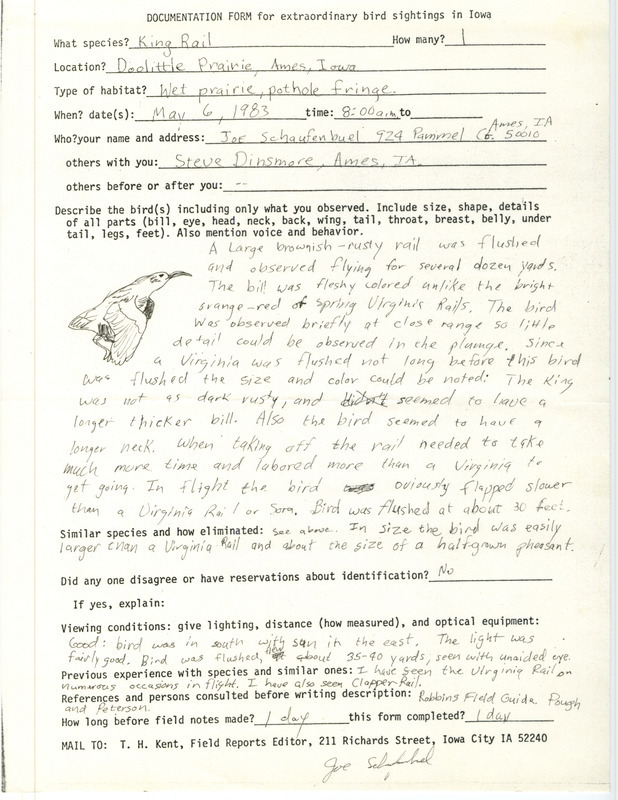 DOCUMENTATION FORM for extraordinary bird sightings in Iowa
What species? King Rail How many? 1
Location? Doolittle Prairie, Ames, Iowa
Type of habitat? Wet prairie, pothole fringe.
When? date(s): May 6, 1983 time: 8:00a.m to
Ames, IA
Who?your name and address: Joe Schaufenbuel 924 Pammel Ct. 50010
others with you: Steve Dinsmore, Ames, IA.
others before or after you: --
Describe the bird(s) including only what you observed. Include size, shape, details
of all parts (bill, eye, head, neck, back, wing, tail, throat, breast, belly, under
tail, legs, feet). Also mention voice and behavior.
A Large brownish-rusty rail was flushed
and observed flying for several dozen yards.
The bill was fleshy colored unlike the bright
orange-red of spring Virginia Rails. The bird
was observed briefly at close range so little
detail could be observed in the plumage. Since
a Virginia was flushed not long before this bird
was flushed the size and color could be noted: The King
was not as dark rusty, and seemed to have a
longer thicker bill. Also the bird seemed to have a
longer neck. When taking off the rail needed to take
much more time and labored more than a Virginia to
get going. In flight the bird oviously flapped slower
than a Virginia Rail or Sora. Bird was flushed at about 30 feet.
Similar species and how eliminated: see above. In size the bird was easily
larger than a Virginia Rail and about the size of a half-grown pheasant.
Did any one disagree or have reservations about identification? No
If yes, explain:
Viewing conditions: give lighting, distance (how measured), and optical equipment:
Good: bird was in south with sun in the east. The light was
fairly good. Bird was flushed, flew about 35-40 yards, seen with unaided eye.
Previous experience with species and similar ones: I have seen the Virginia Rail on
numerous occasions in flight. I have also seen Clapper Rail.
References and persons consulted before writing description: Robbins Field Guide Pough
and Peterson.
How long before field notes made? 1 day this form completed? 1 day
MAIL TO: T. H. Kent, Field Reports Editor, 211 Richards Street, Iowa City IA 52240
Joe